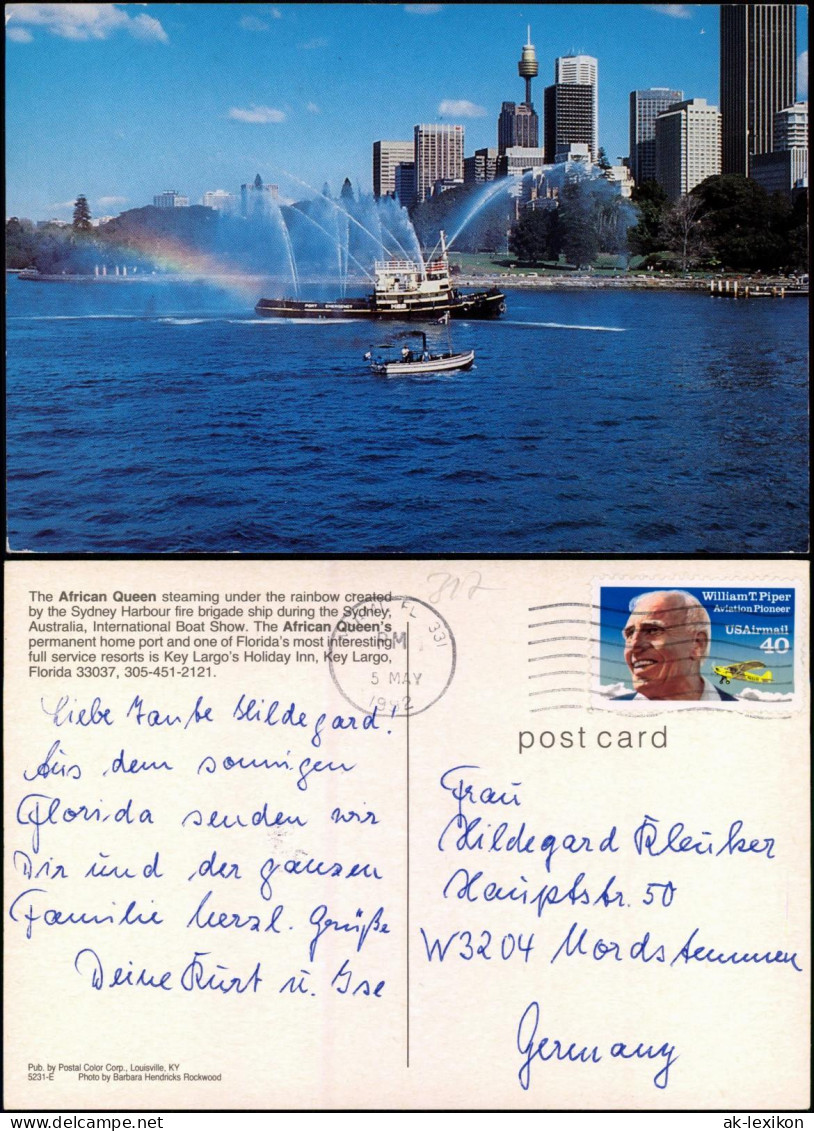 The African Queen steaming under the rainbow created
by the Sydney Harbour fire brigade ship during the Sydney,
Australia, International Boat Show. The African Queen's
permanent home port and one of Florida's most interesting
full service resorts is Key Largo's Holiday Inn, Key Largo,
Florida 33037, 305-451-2121.
FL 331
PM
5 MAY
1992
317
William T. Piper
Aviation Pioneer
USAirmail
40
post card
Liebe Tante Hildegard!
Aus dem sonnigen
Florida senden wir
Dir und der ganzen
Familie herzl. Grüße
Deine Kurt u. Ise
Frau
Hildegard Kleuker
Hauptstr. 50
W3204 Nordstemmen
Germany
Pub. by Postal Color Corp., Louisville, KY
5231-E Photo by Barbara Hendricks Rockwood
www.ak-lexikon.com
ak-lexikon